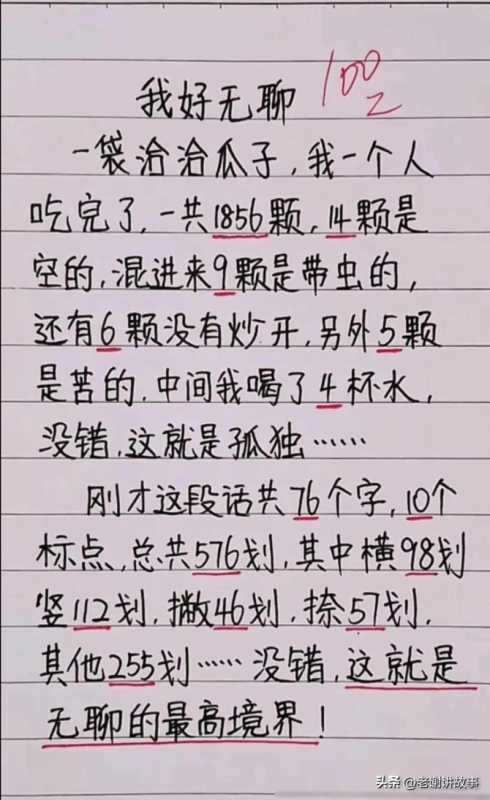 我好无聊
100
一袋洽洽瓜子，我一个人
吃完了，一共1856颗，14颗是
空的，混进来9颗是带虫的，
还有6颗没有炒开，另外5颗
是苦的，中间我喝了4杯水，
没错，这就是孤独……
刚才这段话共76个字，10个
标点，总共576划，其中横98划
竖112划，撇46划，捺57划，
其他255划……没错，这就是
无聊的最高境界！
头条 @老谢讲故事